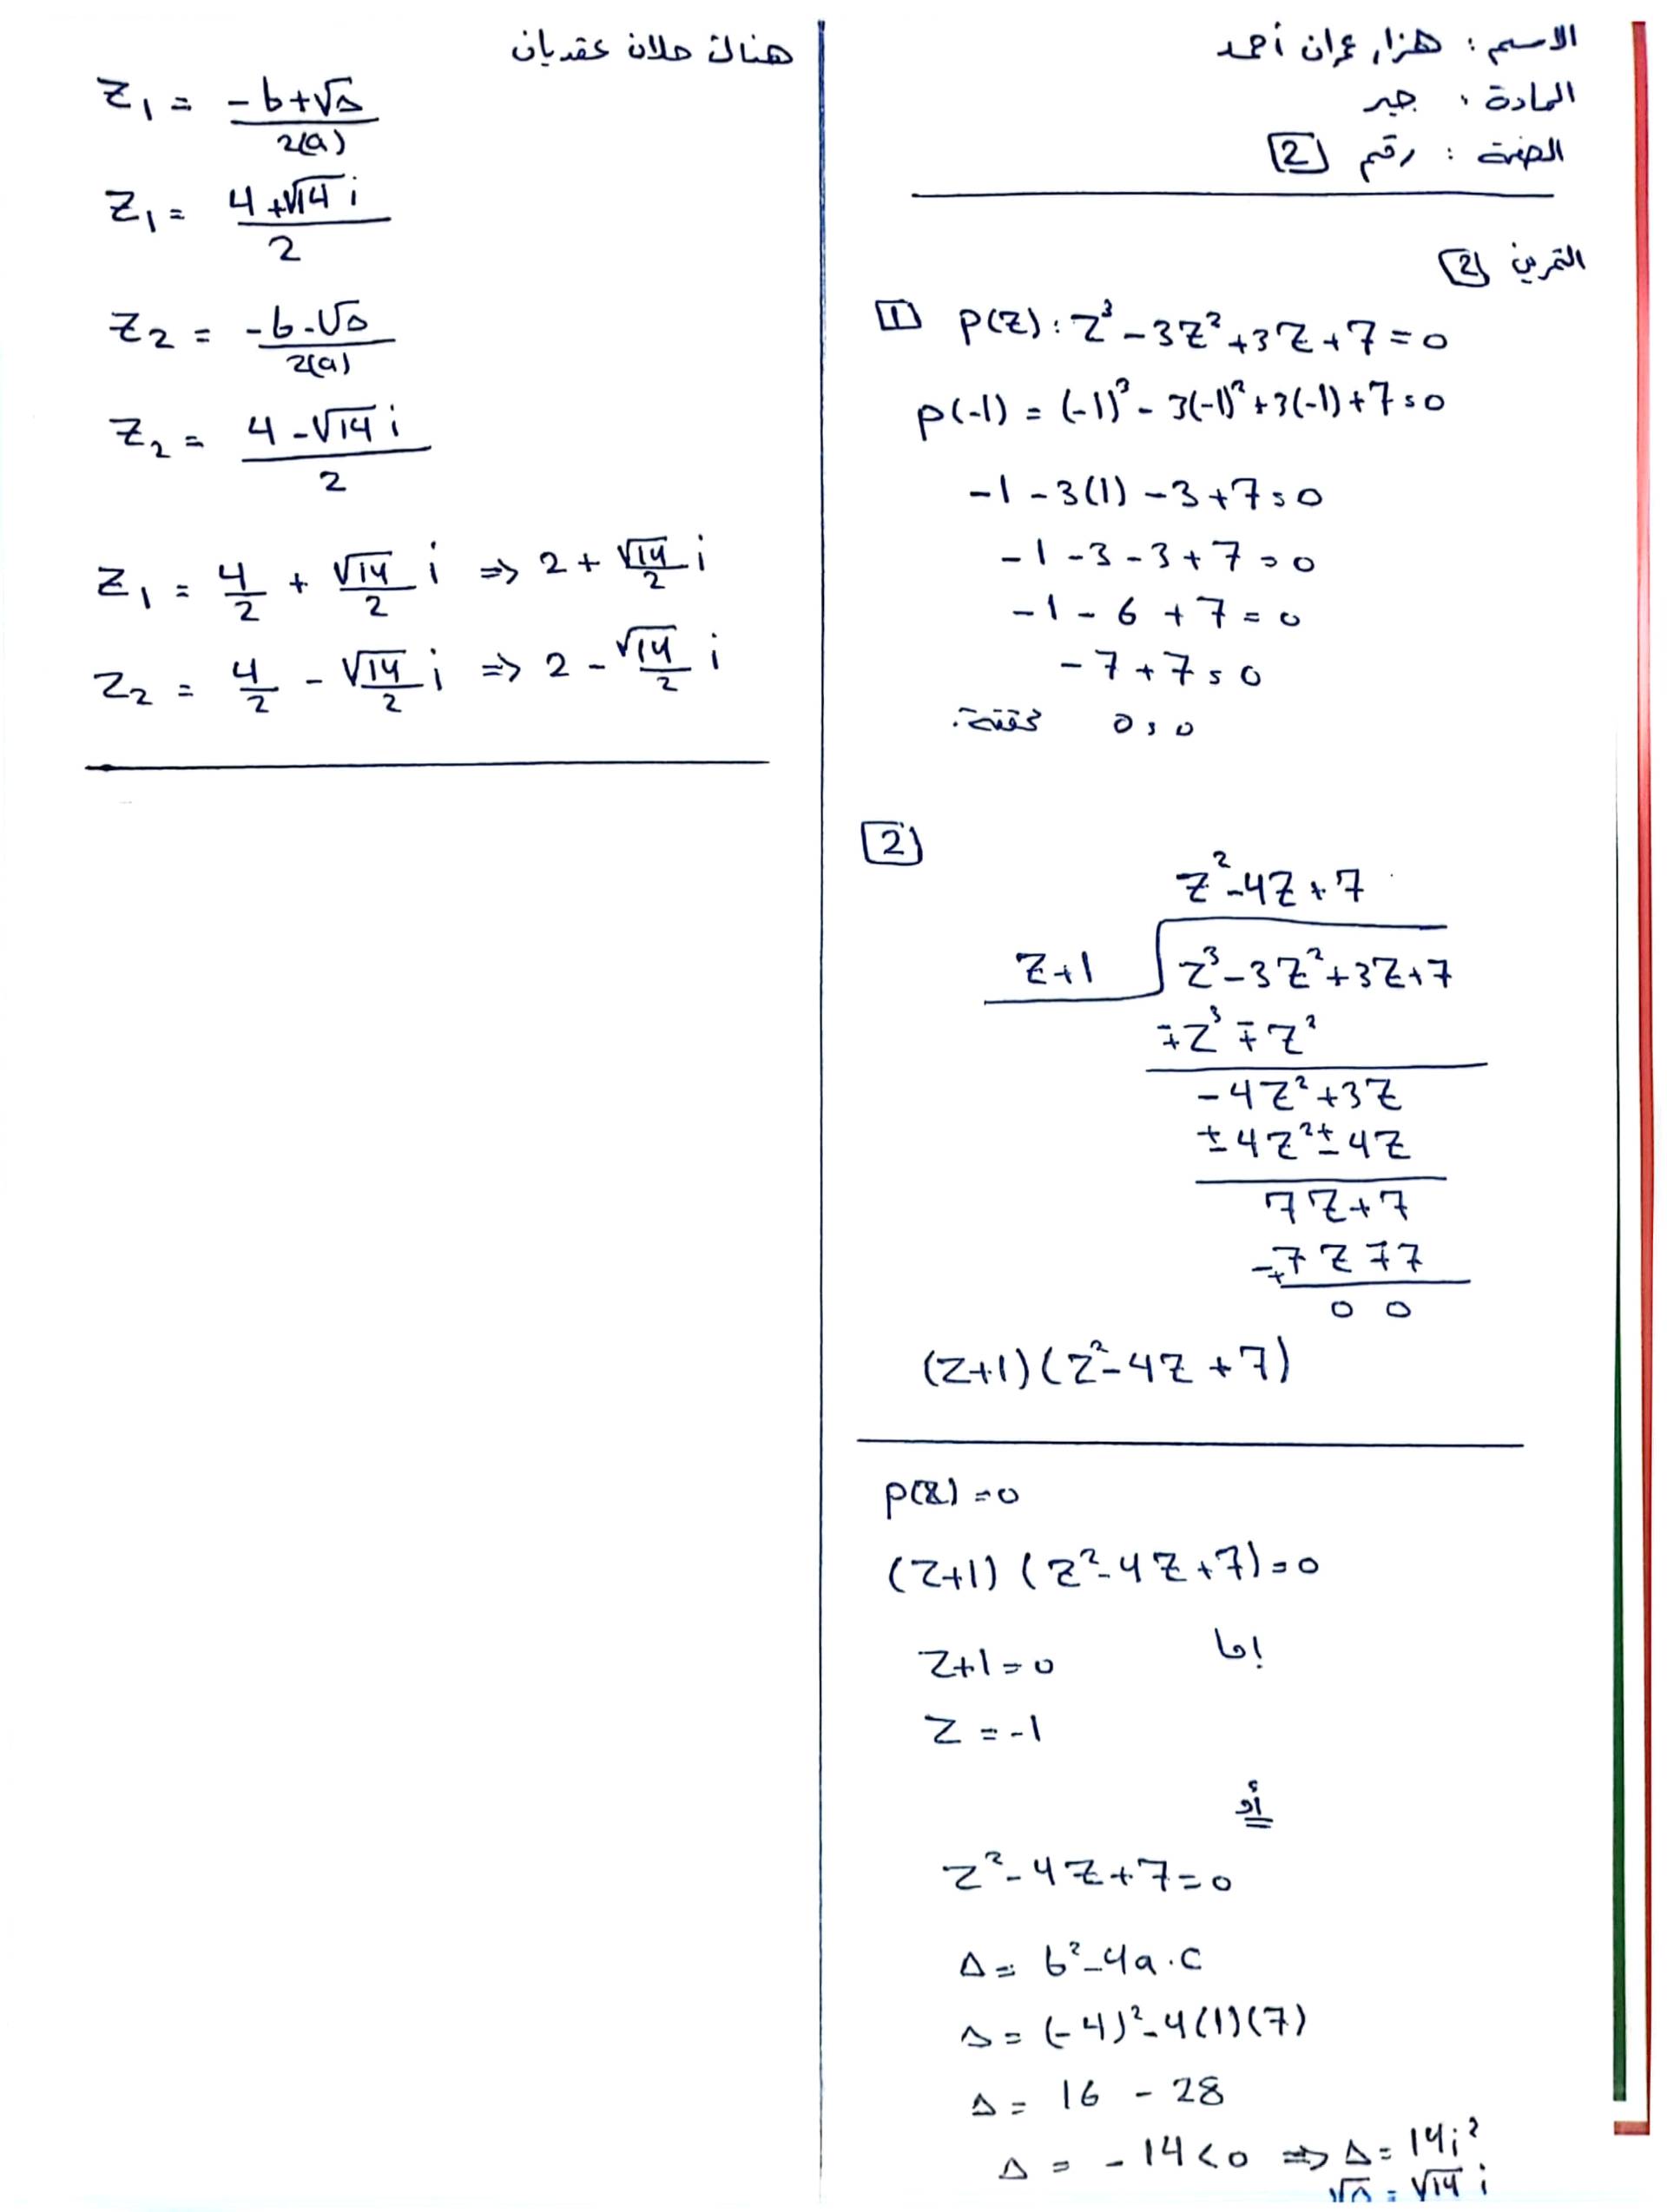 الاسم : هزار عمران أحمد
المادة : جبر
الصفحة : رقم [2]
التمرين [2]
[1] P(Z): Z³ - 3Z² + 3Z + 7 = 0
P(-1) = (-1)³ - 3(-1)² + 3(-1) + 7 = 0
-1 - 3(1) - 3 + 7 = 0
-1 - 3 - 3 + 7 = 0
-1 - 6 + 7 = 0
-7 + 7 = 0
0 = 0 محققة.
[2]
Z² - 4Z + 7
Z+1 Z³ - 3Z² + 3Z + 7
∓Z³ ∓ Z²
-4Z² + 3Z
± 4Z² ± 4Z
7Z + 7
∓7Z ∓ 7
0 0
(Z+1)(Z² - 4Z + 7)
P(Z) = 0
(Z+1)(Z² - 4Z + 7) = 0
إما Z+1 = 0
Z = -1
أو
Z² - 4Z + 7 = 0
Δ = b² - 4a.c
Δ = (-4)² - 4(1)(7)
Δ = 16 - 28
Δ = -14 < 0 ⇒ Δ = 14i²
√Δ = √14 i
هناك حلان عقديان
Z₁ = (-b + √Δ) / 2(a)
Z₁ = (4 + √14 i) / 2
Z₂ = (-b - √Δ) / 2(a)
Z₂ = (4 - √14 i) / 2
Z₁ = 4/2 + √14/2 i ⇒ 2 + √14/2 i
Z₂ = 4/2 - √14/2 i ⇒ 2 - √14/2 i